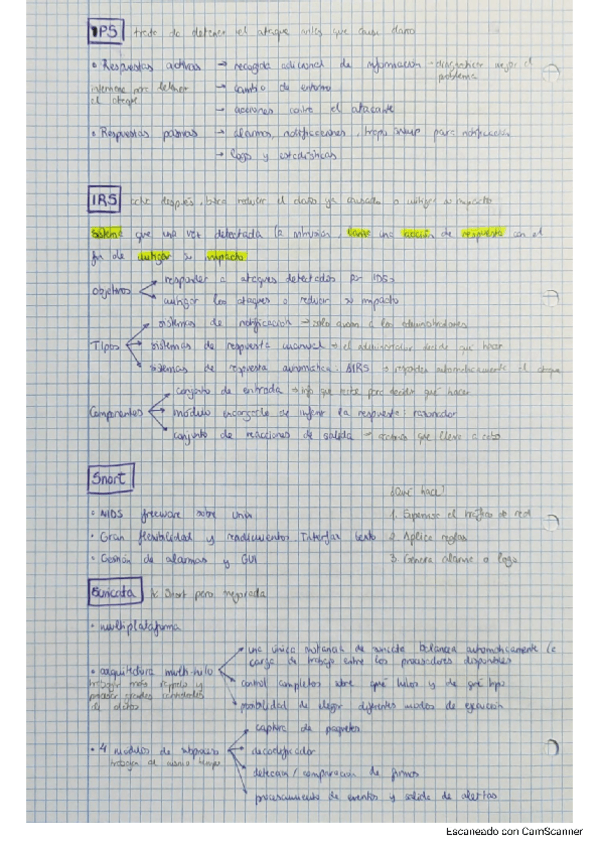 IPS trata de detener el ataque antes que cause daño
• Respuestas activas → recogida adicional de información - diagnosticar mejor el problema
intervienen para detener el ataque → cambio de entorno
→ acciones contra el atacante
• Respuestas pasivas → alarmas, notificaciones, traps SNMP para notificación
→ logs y estadísticas
IRS actúa después, busca reducir el daño ya causado o mitigar su impacto
Sistema que una vez detectada la intrusión, lanza una acción de respuesta con el
fin de mitigar su impacto
Objetivos → responder a ataques detectados por IDSs
→ mitigar los ataques o reducir su impacto
Tipos → sistemas de notificación → solo avisan a los administradores
→ sistemas de respuesta manual → el administrador decide qué hacer
→ sistemas de respuesta automática. AIRS → responder automáticamente el ataque
Componentes → conjunto de entrada → info que recibe para decidir qué hacer
→ módulo encargado de inferir la respuesta: razonador
→ conjunto de reacciones de salida → acciones que lleva a cabo
Snort
¿Qué hace?
• NIDS freeware sobre Unix 1. Supervisa el tráfico de red
• Gran flexibilidad y rendimientos Interfaz texto 2. Aplica reglas
• Gestión de alarmas y GUI 3. Genera alarma o logs
Suricata Snort pero mejorada
• multiplataforma
• arquitectura multi-hilo → una única instancia de suricata balancea automáticamente la carga de trabajo entre los procesadores disponibles
trabajar más rápido y procesar grandes cantidades de datos → control completos sobre qué hilos y de qué tipo
→ posibilidad de elegir diferentes modos de ejecución
• 4 módulos de trabajan al mismo tiempo → captura de paquetes
→ decodificador
→ detección / comparación de firmas
→ procesamiento de eventos y salida de alertas
Escaneado con CamScanner